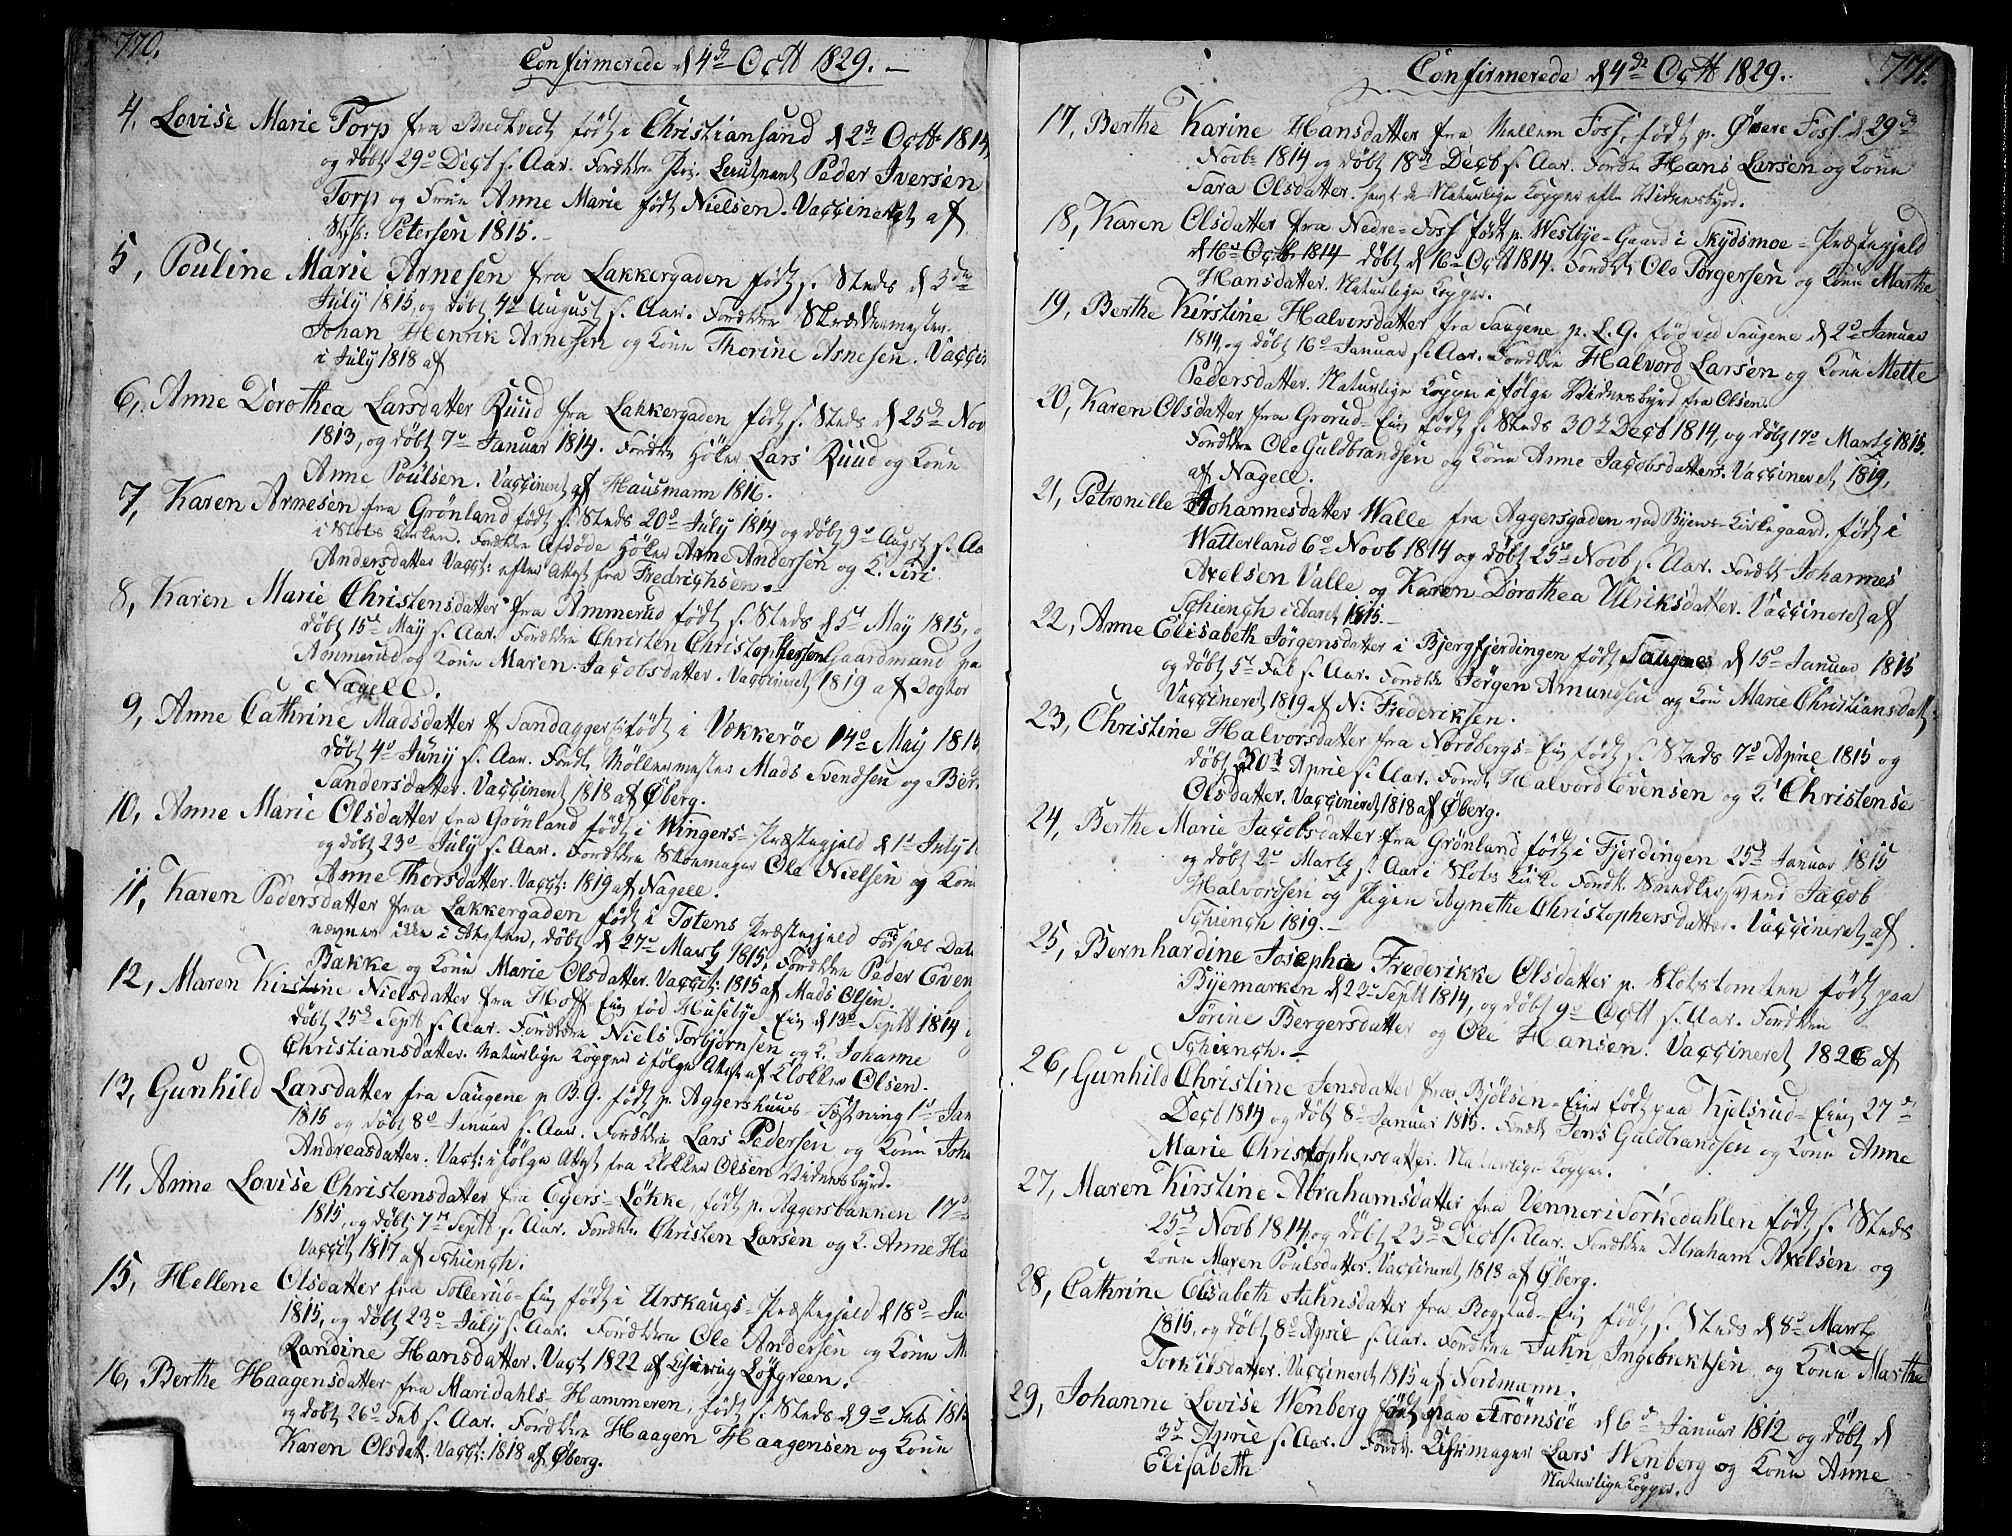 770.
Confirmerede d 4de Octt 1829.
4, Lovise Marie Torp fra Bredtvedt født i Christiansand d 2den Octb 1814
og døbt 29de Decb s. Aar. Forældre Leutnant Peder Iversen
Torp og Frue Anne Marie født Nielsen. Vaccineret af
Petersen 1815.
5, Pouline Marie Arnesen fra Lakkergaden født s. Steds d 3die
July 1815, og døbt 4de August s. Aar. Forældre
Johan Henrik Arnesen og Kone Thorine Arnesen. Vaccin
i July 1818 af
6, Anne Dorothea Larsdatter Ruud fra Lakkergaden født s. Steds d 25de Nov
1813, og døbt 7de Januar 1814. Forældre Høker Lars Ruud og Kone
Anne Poulsen. Vaccineret af Hausmann 1816.
7, Karen Arnesen fra Grønland født s. Steds 20de July 1814 og døbt 9de Augst s. Aa
i Slots Kirken. Forældre Afdøde Høker Arne Andersen og K. Siri
Andersdatter Vacct: efter Attest fra Fredrichsen.
8, Karen Marie Christensdatter fra Ammerud født s. Steds d 5te May 1815,
døbt 15de May s. Aar. Forældre Christen Christophersen Gaardmand paa
Ammerud og Kone Maren Jacobsdatter. Vaccineret 1819 af Doctor
Nagell.
9, Anne Cathrine Madsdatter af Sandagger født i Vækkerøe 14de May 1815
døbt 4de Juny s. Aar. Forældre Møllermester Mads Svendsen og Ber
Sandersdatter. Vaccineret 1818 af Øberg.
10, Anne Marie Olsdatter fra Grønland født i Wingers-Præstegjeld d 1ste July
og døbt 23de July s. Aar. Forældre Skoemager Ole Nielsen og Kone
Anne Thorsdatter. Vacct: 1819 af Nagell.
11, Karen Pedersdatter fra Lakkergaden født i Totens Præstegjeld Fødsels Dato
nævnes ikke i Attesten, døbt d 27de Marty 1815, Forældre Peder Even
Bakke og Kone Marie Olsdatter. Vacct: 1815 af Mads Olsen.
12, Maren Kirstine Nielsdatter fra Hoff-Eie fød Husebye-Eie d 13de Septt 1814
døbt 25de Septt s. Aar. Forældre Niels Torbjørnsen og K. Johanne
Christiansdatter. Naturlige Kopper ifølge Attest af Klokker Olsen.
13, Gunhild Larsdatter fra Saugene p B.G. født p. Aggershuus-Fæstning 1ste Jan
1815 og døbt 8de Januar s. Aar. Forældre Lars Pedersen og Kone Joha
Andreasdatter. Vact: ifølge Attest fra Klokker Olsen Vidnesbyrd.
14, Anne Lovise Christensdatter fra Egers-Løkke, født p. Aggersbakken 17de
1815, og døbt 7de Septt s. Aar. Forældre Christen Larsen og K. Anne Ha
Vaccit 1817 af Schiengh.
15, Hellene Olsdatter fra Sollerud-Eie født i Urskaugs-Præstegjeld d 18de Ju
1815, og døbt 23de July s. Aar. Forældre Ole Andersen og Kone M
Randine Hansdatter. Vact 1822 af Løfgreen.
16, Berthe Haagensdatter fra Maridahls-Hammeren, født s. Steds d 9de Feb. 1815
og døbt 26de Feb s. Aar. Forældre Haagen Haagensen og Kone
Karen Olsdat. Vacct: 1818 af Øberg.
Confirmerede d 4de Octt 1829.
771.
17, Berthe Karine Hansdatter fra Mellem Foss, født p. Øvere Foss d 29de
Novb 1814 og døbt 18de Decb s. Aar. Forældre Hans Larsen og Kone
Sara Olsdatter. havt de Naturlige Kopper efter Vidnesbyrd.
18, Karen Olsdatter fra Nedre-Foss født p. Westbye-Gaard i Skydsmoe-Præstegjeld
d 16de Octb 1814 døbt d 16de Octt 1814. Forældre Ole Torgersen og Kone Marthe
Hansdatter. Naturlige Kopper.
19, Berthe Kirstine Halvorsdatter fra Saugene p. L.G. fød ved Saugene d 2de Januar
1814 og døbt 16de Januar s. Aar. Forældre Halvord Larsen og Kone Mette
Pedersdatter. Naturlige Kopper ifølge Vidnesbyrd fra Olsen.
20, Karen Olsdatter fra Grorud-Eie født s. Steds 30te Decb 1814, og døbt 17de Marty 1815.
Forældre Ole Guldbrandsen og Kone Anne Jacobsdatter. Vaccineret 1819,
af Nagell.
21, Petronille Johannesdatter Walle fra Aggersgaden ved Byens Kirkegaard. født i
Watterland 6te Novb 1814 og døbt 25de Novb s. Aar. Forældre Johannes
Axelsen Valle og Karen Dorothea Ulriksdatter. Vaccineret af
Schiengh i Aaret 1815.
22, Anne Elisabeth Jørgensdatter i Bjergfjerdingen født Saugene d 15de Januar 1815
og døbt 5te Feb s. Aar. Forældre Jørgen Amundsen og Kone Marie Christiansdatt
Vaccineret 1819 af N: Frederiksen.
23, Christine Halvorsdatter fra Nordbergs-Eie født s. Steds 7de Aprie 1815 og
døbt 30te Aprie s. Aar. Forældre Halvord Evensen og K. Christense
Olsdatter. Vaccineret 1818 af Øberg.
24, Berthe Marie Jacobsdatter fra Grønland født i Fjerdingen 25de Januar 1815
og døbt 2de Marty s. Aar i Slots Kirke. Forældre Snedkersvend Jacob
Halvordsen og Pigen Agnethe Christophersdatter. Vaccineret af
Schiengh 1819.
25, Bernhardine Josephia Frederikke Olsdatter p. Slotstomten født paa
Byemarken d 23de Septt 1814, og døbt 9de Octt s. Aar. Forældre
Torine Bergersdatter og Ole Hansen. Vaccineret 1826 af
Schiengh.
26, Gunhild Christine Jensdatter fra Bjølsen-Eier født paa Kjelsrud-Eie, 27de
Decb 1814 og døbt 8de Januar 1815. Forældre Jens Guldbransen og Kone Anne
Marie Christophersdatter. Naturlige Kopper.
27, Maren Kirstine Abrahamsdatter fra Venner i Sørkedahlen født s. Steds
25de Novb 1814, og døbt 23de Decb s. Aar. Forældre Abraham Axelsen og
Kone Maren Poulsdatter. Vaccineret 1818 af Øberg.
28, Cathrine Elisabeth Juhnsdatter fra Bogstad-Eie født s. Steds d 8de Marty
1815, og døbt 8de Aprie s. Aar. Forældre Juhn Ingebrektsen og Kone Marthe
Torkilsdatter. Vaccineret 1815 af Nordmann.
29, Johanne Lovise Wenberg født paa Trømsøe d 6te Januar 1812 og døbt d
3de Aprie s. Aar. Forældre Lars Wenberg og Kone Anne
Elisabeth Naturlige Kopper.